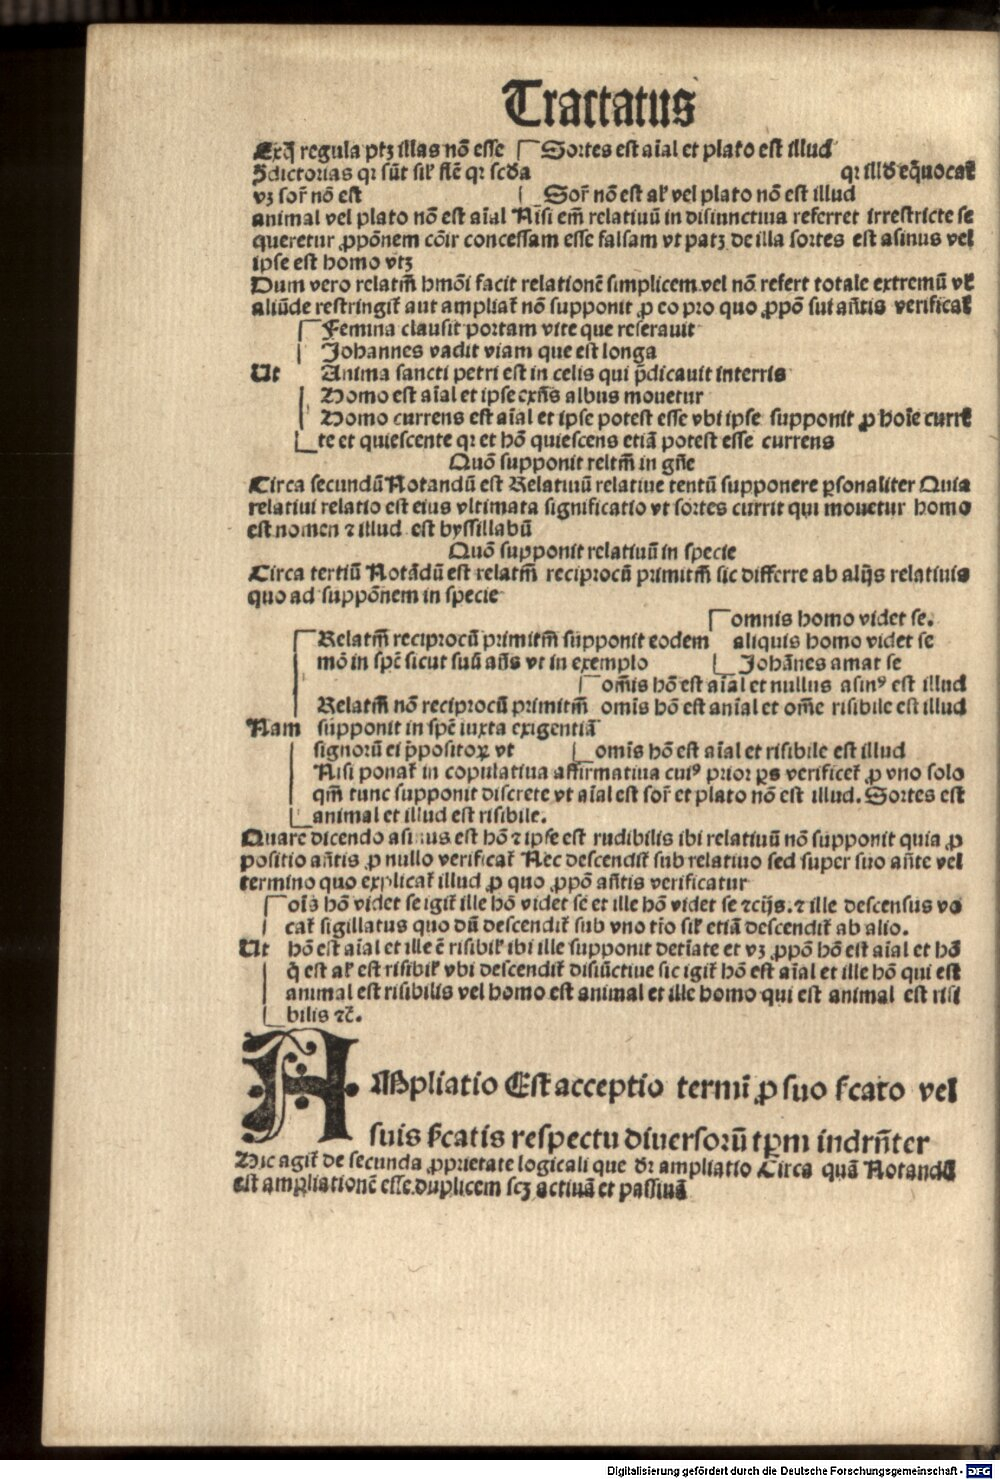 Tractatus
Exq̄ regula ptꝫ illas nō esse Sortes est aīal et plato est illud
ꝯdictorias qꝛ sūt sil' fl'ē qꝛ scd'a qꝛ ill'd eq̄uocat'
vꝫ sor' nō est Sor' nō est al' vel plato nō est illud
animal vel plato nō est aīal Nisi em̄ relatiuū in disiunctiua referret irrestricte se
queretur ꝓpōnem cōir concessam esse falsam vt patꝫ de illa sortes est asinus vel
ipse est homo vtꝫ
Dum vero relatm̄ hmōi facit relationē simplicem vel nō refert totale extremū vl'
aliūde restringit' aut ampliat' nō supponit ꝓ eo pro quo ꝓpō sui an̄tis verificat'
Femina clausit portam vite que reserauit
Johannes vadit viam que est longa
Ut Anima sancti petri est in celis qui p̄dicauit interris
Homo est aīal et ipse exn̄s albus mouetur
Homo currens est aīal et ipse potest esse vbi ipse supponit ꝓ hoīe currē
te et quiescente qꝛ et hō quiescens etiā potest esse currens
Quō supponit reltm̄ in gn̄e
Circa secundū Notandū est Relatiuū relatiue tentū supponere ꝑsonaliter Quia
relatiui relatio est eius vltimata significatio vt sortes currit qui mouetur homo
est nomen ⁊ illud est byssillabū
Quō supponit relatiuū in specie
Circa tertiū Notādū est relatm̄ reciprocū primitm̄ sic differre ab alijs relatiuis
quo ad suppōnem in specie
omnis homo videt se.
Relatm̄ reciprocū primitm̄ supponit eodem aliquis homo videt se
mō in spē sicut suū an̄s vt in exemplo Johānes amat se
om̄is hō est aīal et nullus asinꝰ est illud
Relatm̄ nō reciprocū primitm̄ omīs hō est anīal et om̄e risibile est illud
Nam supponit in spē iuxta exigentiā
signorū ei p̄positoꝝ vt omīs hō est aīal et risibile est illud
Nisi ponat' in copulatiua affirmatiua cuiꝰ prior ꝑs verificet' ꝓ vno solo
qm̄ tunc supponit discrete vt aīal est sor' et plato nō est illud. Sortes est
animal et illud est risibile.
Quare dicendo asinus est hō ⁊ ipse est rudibilis ibi relatiuū nō supponit quia ꝓ
positio an̄tis ꝓ nullo verificat' Nec descendit' sub relatiuo sed super suo an̄te vel
termino quo explicat' illud ꝓ quo ꝓpō an̄tis verificatur
oīs hō videt se igit' ille hō videt se et ille hō videt se ⁊cijs. ⁊ ille descensus vo
cat' sigillatus quo dū descendit' sub vno tīo sil' etiā descendit' ab alio.
Ut hō est aīal et ille ē risibil' ibi ille supponit detīate et vꝫ ꝓpō hō est aīal et hō
q̄ est al' est risibil' vbi descendit' disiūctiue sic igit' hō est aīal et ille hō qui est
animal est risibilis vel homo est animal et ille homo qui est animal est risi
bilis ⁊c̄.
AMpliatio Est acceptio termī ꝓ suo s'cato vel
suis s'catis respectu diuersorū tꝑm indrn̄ter
Hic agit' de secunda ꝓprietate logicali que dr' ampliatio Circa quā Notandū
est ampliationē esse duplicem scꝫ actiuā et passiuā
Digitalisierung gefördert durch die Deutsche Forschungsgemeinschaft - DFG